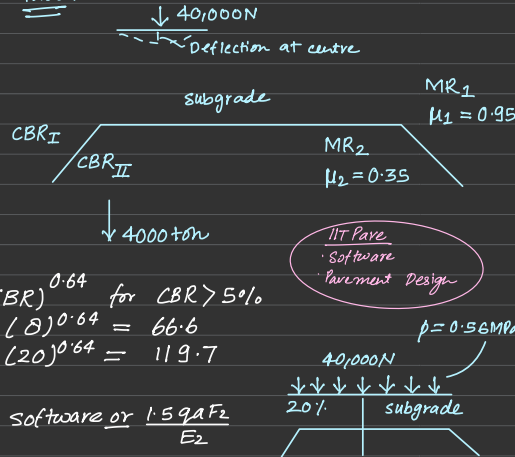 40,000N
Deflection at centre
subgrade
MR1
μ1 = 0.95
CBR I
CBR II
MR2
μ2 = 0.35
4000 ton
IIT Pave
· Software
· Pavement Design
BR)^0.64 for CBR > 5%
(8)^0.64 = 66.6
(20)^0.64 = 119.7
p = 0.56MPa
40,000N
20% subgrade
software or 1.5qaF2
E2